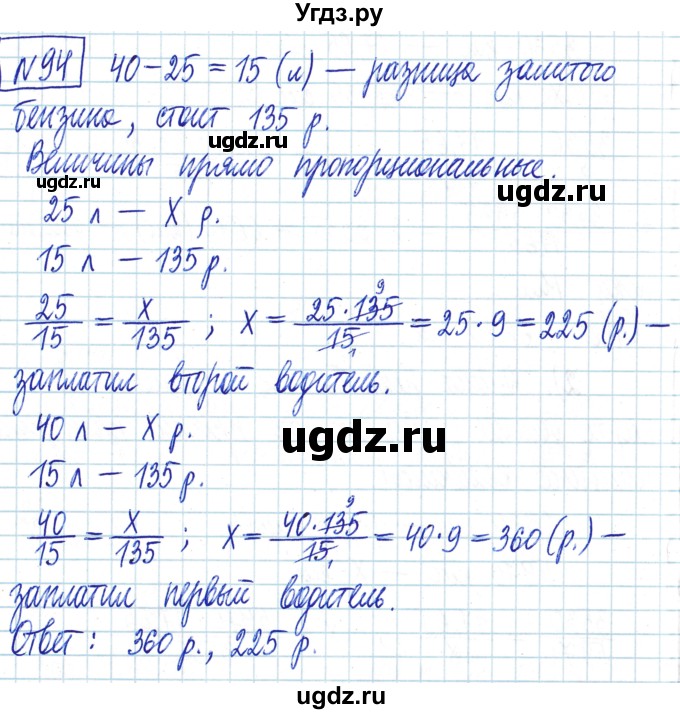 Угдз.ру
№94 40 − 25 = 15 (л) — разница залитого
бензина, стоит 135 р.
ugdz.ru ugdz.ru
Величины прямо пропорциональные.
ugdz.ru ugdz.ru
25 л — X р.
15 л — 135 р.
25/15 = X/135 ; X = 25·135/15 = 25·9 = 225 (р.) —
9 1
заплатил второй водитель.
40 л — X р.
ugdz.ru
15 л — 135 р.
40/15 = X/135 ; X = 40·135/15 = 40·9 = 360 (р.) —
9 1
заплатил первый водитель.
ugdz.ru ugdz.ru
Ответ: 360 р., 225 р.
ugdz.ru